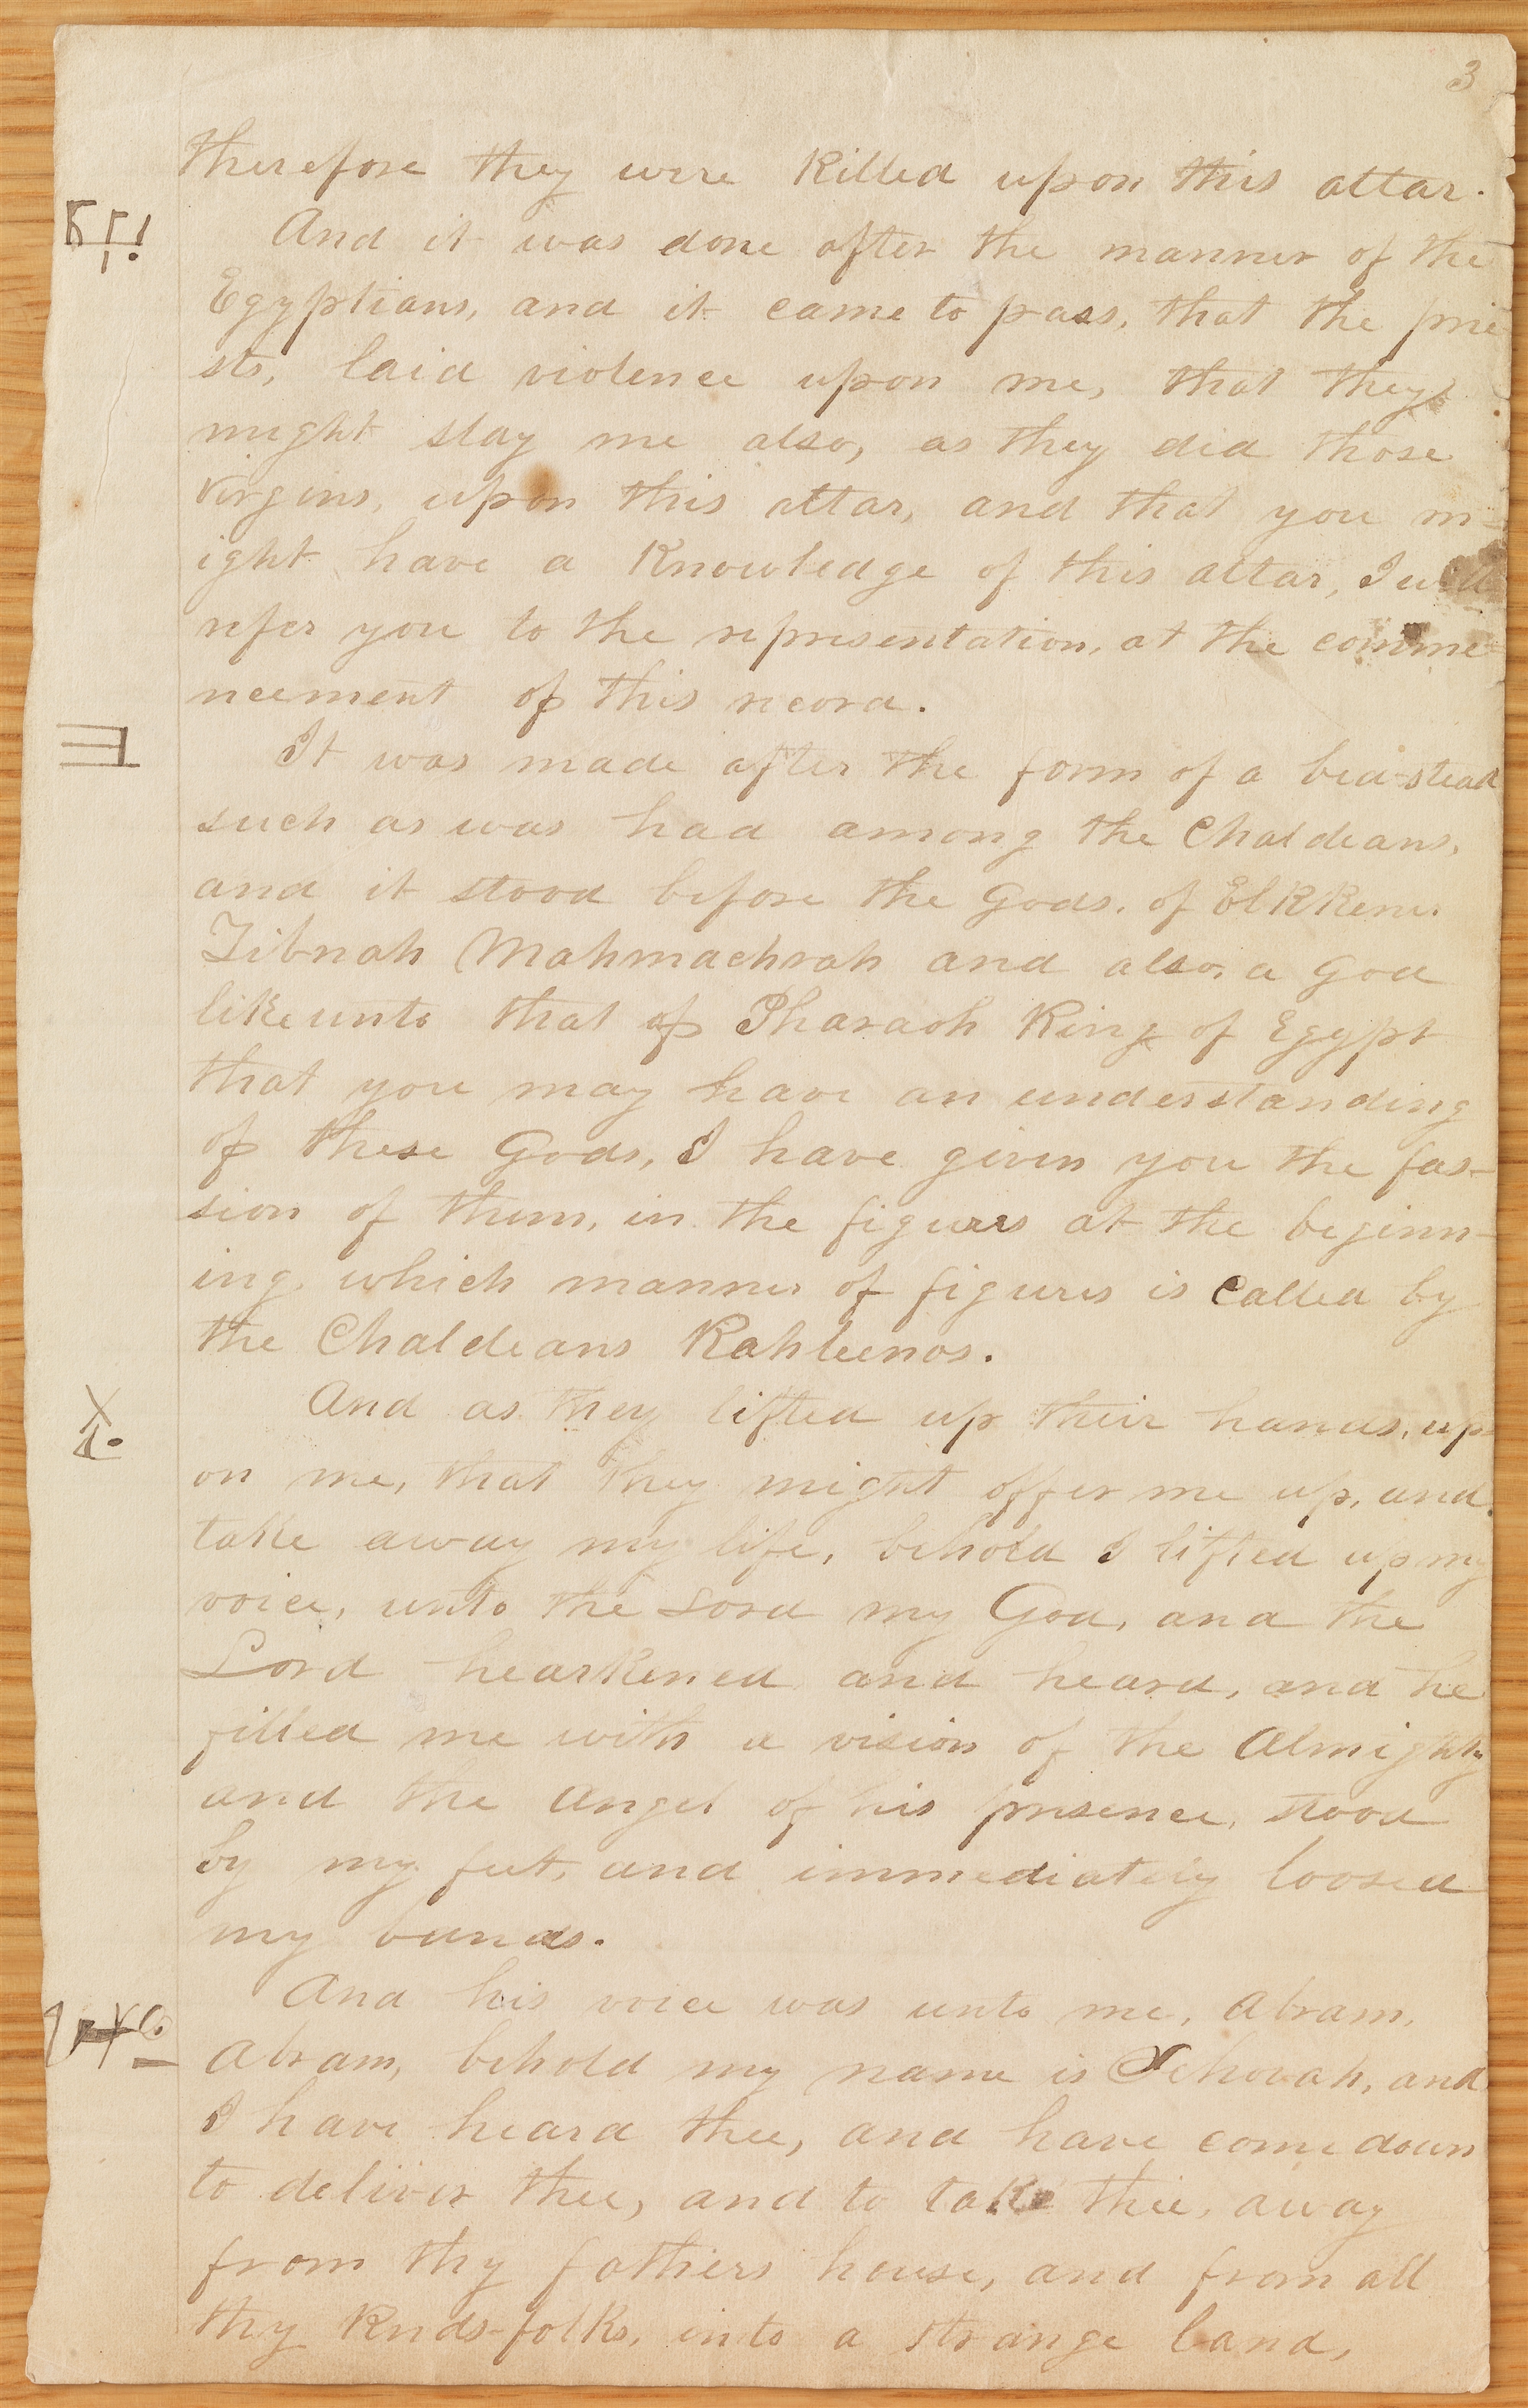 3
therefore they were killed upon this altar.
And it was done after the manner of the
Egyptians, and it came to pass, that the prie
sts, laid violence upon me, that they
might slay me also, as they did those
virgins, upon this altar, and that you m-
ight have a knowledge of this altar, I will
refer you to the representation, at the comme-
ncement of this record.
It was made after the form of a bed-stead
such as was had among the Chaldeans,
and it stood before the Gods, of Elkkener
Zibnah Mahmachrah and also, a God
like unto that of Pharaoh King of Egypt
that you may have an understanding
of these Gods, I have given you the fas-
sion of them, in the figures at the beginn-
ing which manner of figures is called by
the Chaldeans Kahleenos.
And as they lifted up their hands, up
on me, that they might offer me up, and
take away my life, behold I lifted up my
voice, unto the Lord my God, and the
Lord hearkened and heard, and he
filled me with a vision of the Almighty
and the angel of his presence, stood
by my feet, and immediately loosed
my bands.
And his voice was unto me, Abram,
Abram, behold my name is Jehovah, and
I have heard thee, and have come down
to deliver thee, and to take thee, away
from thy fathers house, and from all
thy kinds-folks, into a strange land,